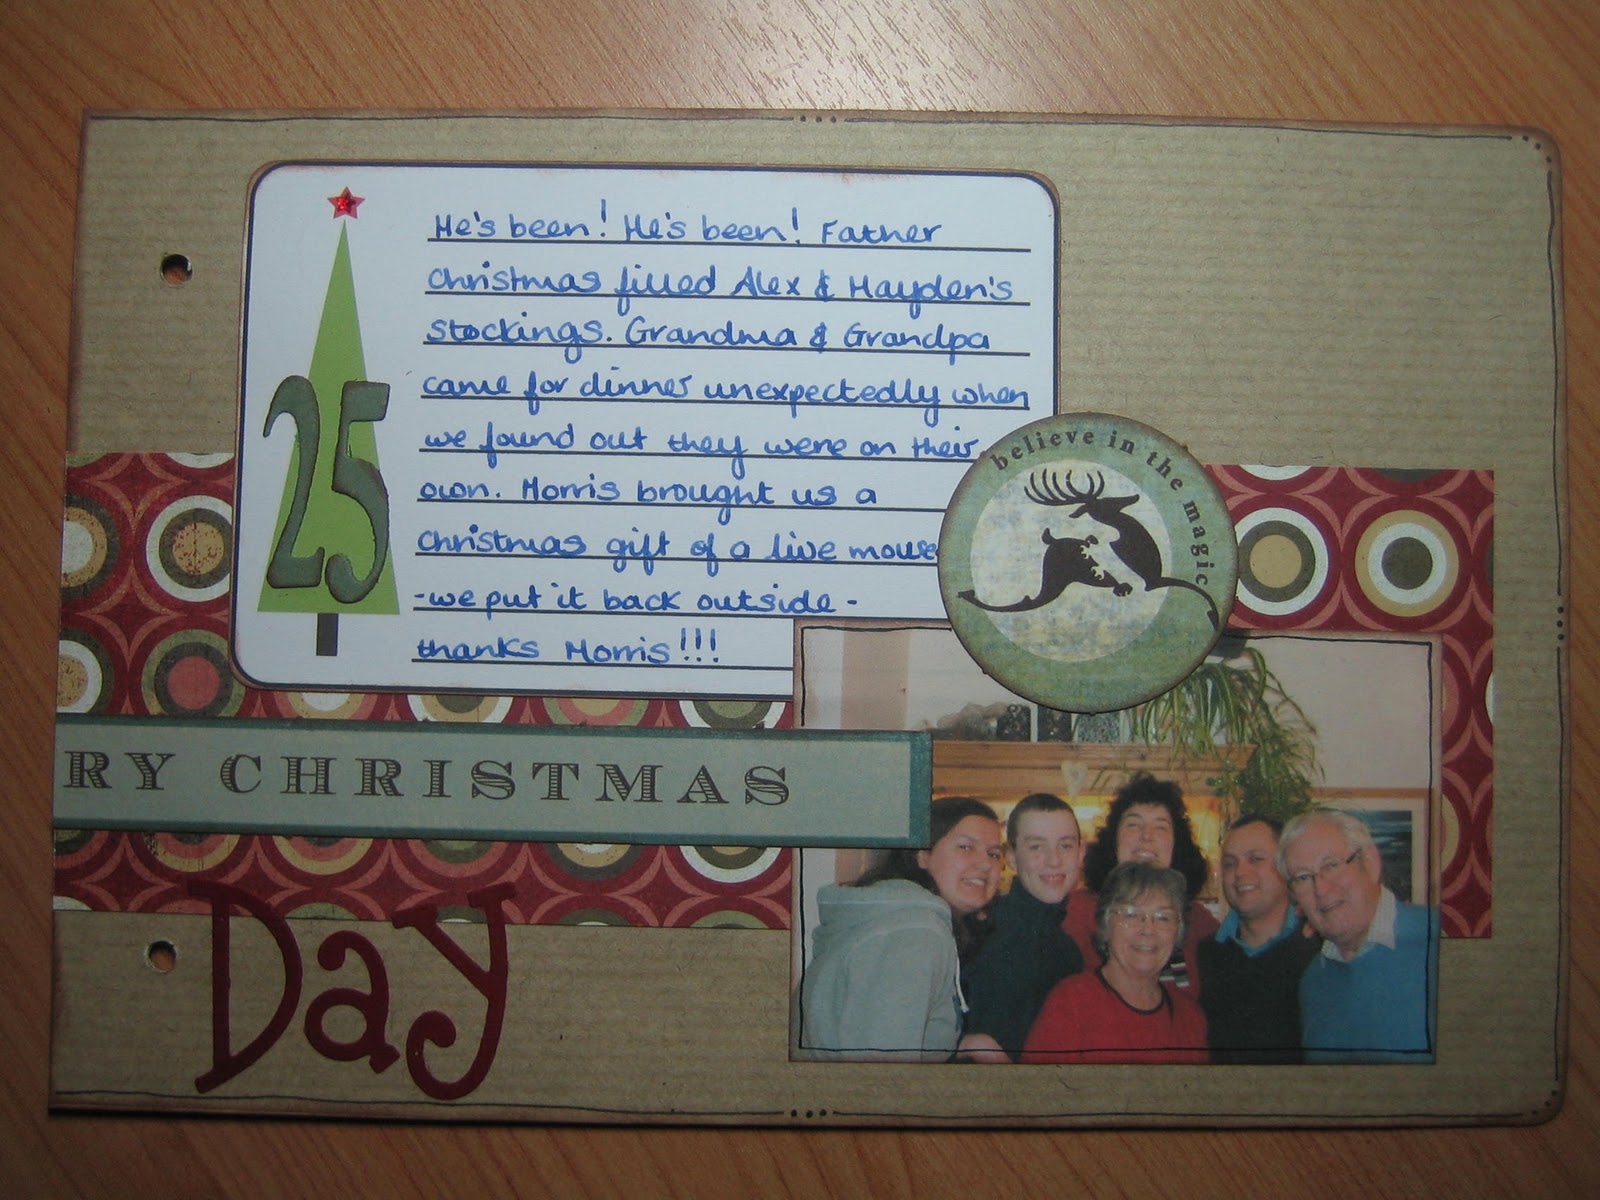 He's been! He's been! Father
Christmas filled Alex & Hayden's
stockings. Grandma & Grandpa
came for dinner unexpectedly when
we found out they were on their
own. Morris brought us a
christmas gift of a live mouse
- we put it back outside -
thanks Morris!!!
25
believe in the magic
RY CHRISTMAS
Day